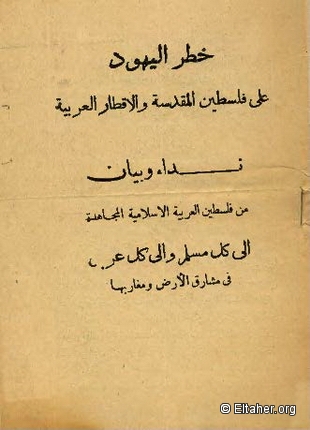 خطر اليهود
على فلسطين المقدسة والاقطار العربية
نداء وبيان
من فلسطين العربية الاسلامية المجاهدة
الى كل مسلم والى كل عربي
في مشارق الأرض ومغاربها
© Eltaher.org